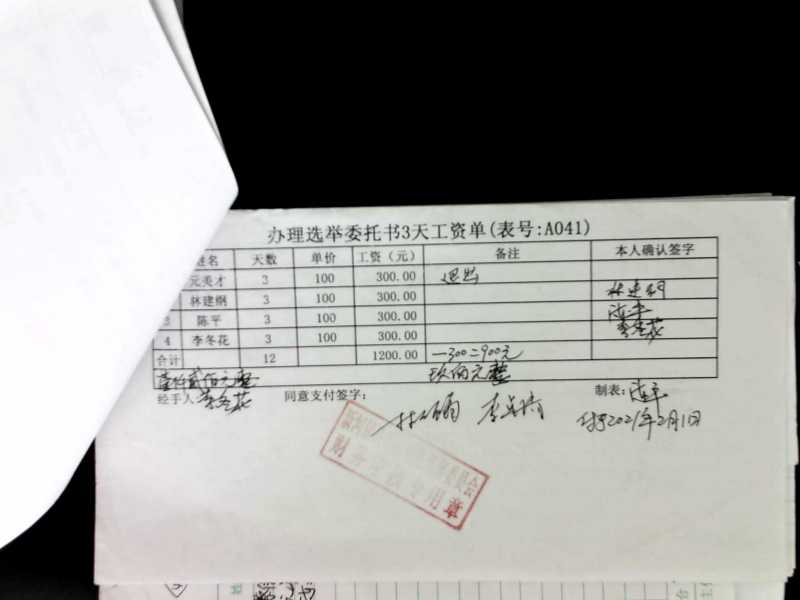 办理选举委托书3天工资单(表号:A041)
姓名 天数 单价 工资（元） 备注 本人确认签字
元美才 3 100 300.00 退出
林建纲 3 100 300.00 林建纲
3 陈平 3 100 300.00 陈平
4 李冬花 3 100 300.00 李冬花
合计 12 1200.00 -300=900元
壹仟贰佰元整 玖佰元整
经手人: 李冬花 同意支付签字: 制表: 陈平
2021年2月1日
财务 专用章